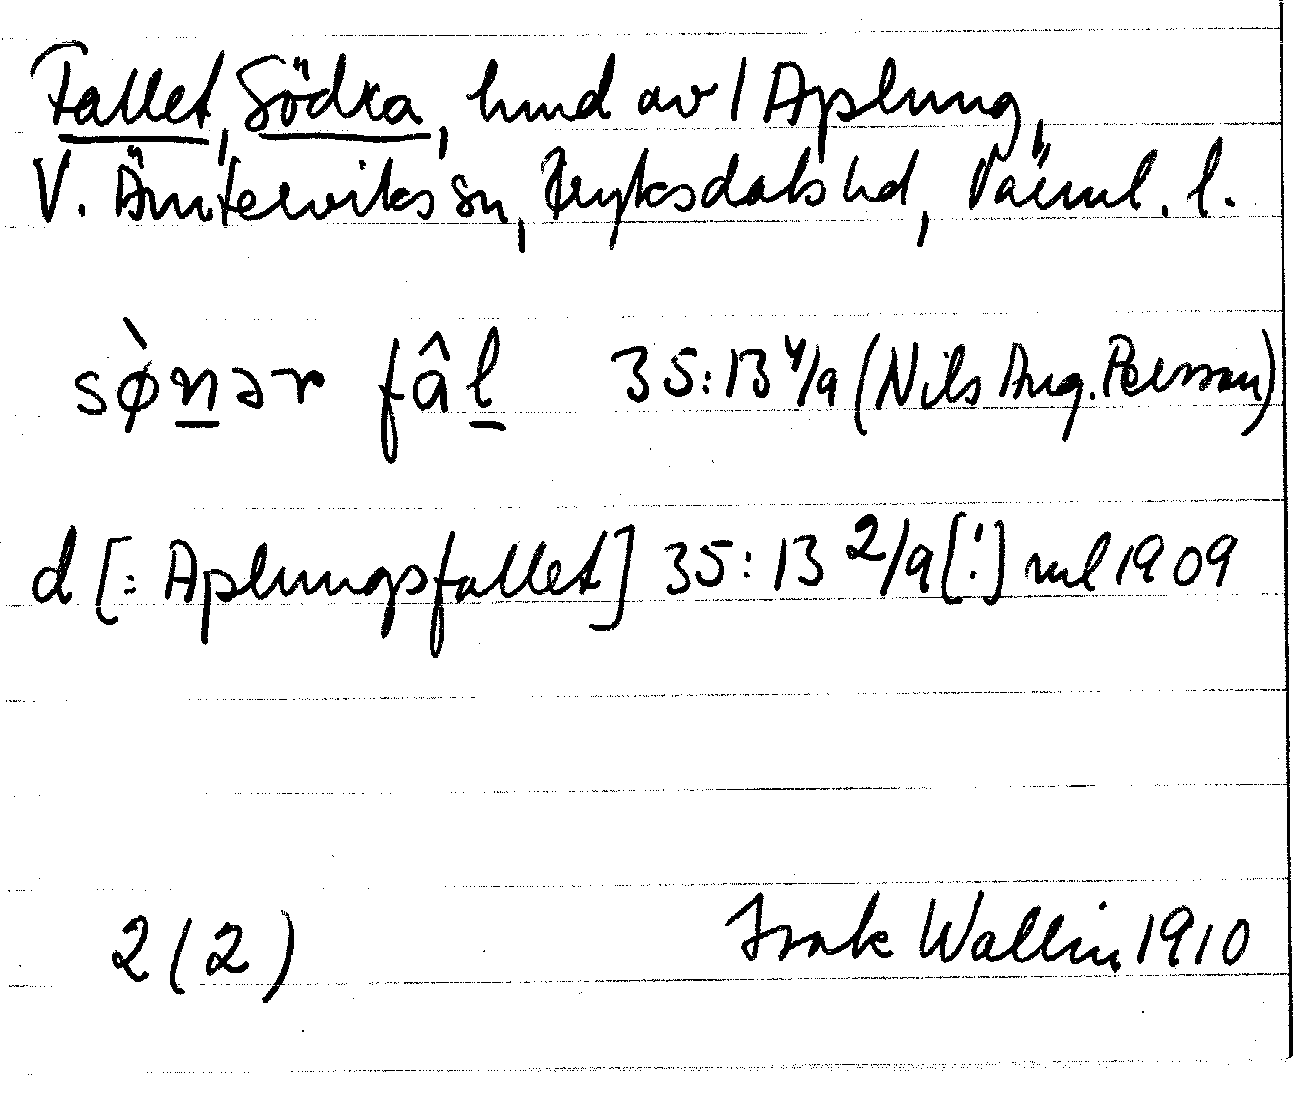 Fallet, Södra, hmd av 1 Aplung,
V. Ämterviks sn, Fryksdals hd, Värml. l.
sø̀n̲ər fâl̲ 35:13 4/9 (Nils Aug. Persson)
d [: Aplungsfallet] 35:13 2/9 [!] rml 1909
2 (2) Isak Wallin 1910